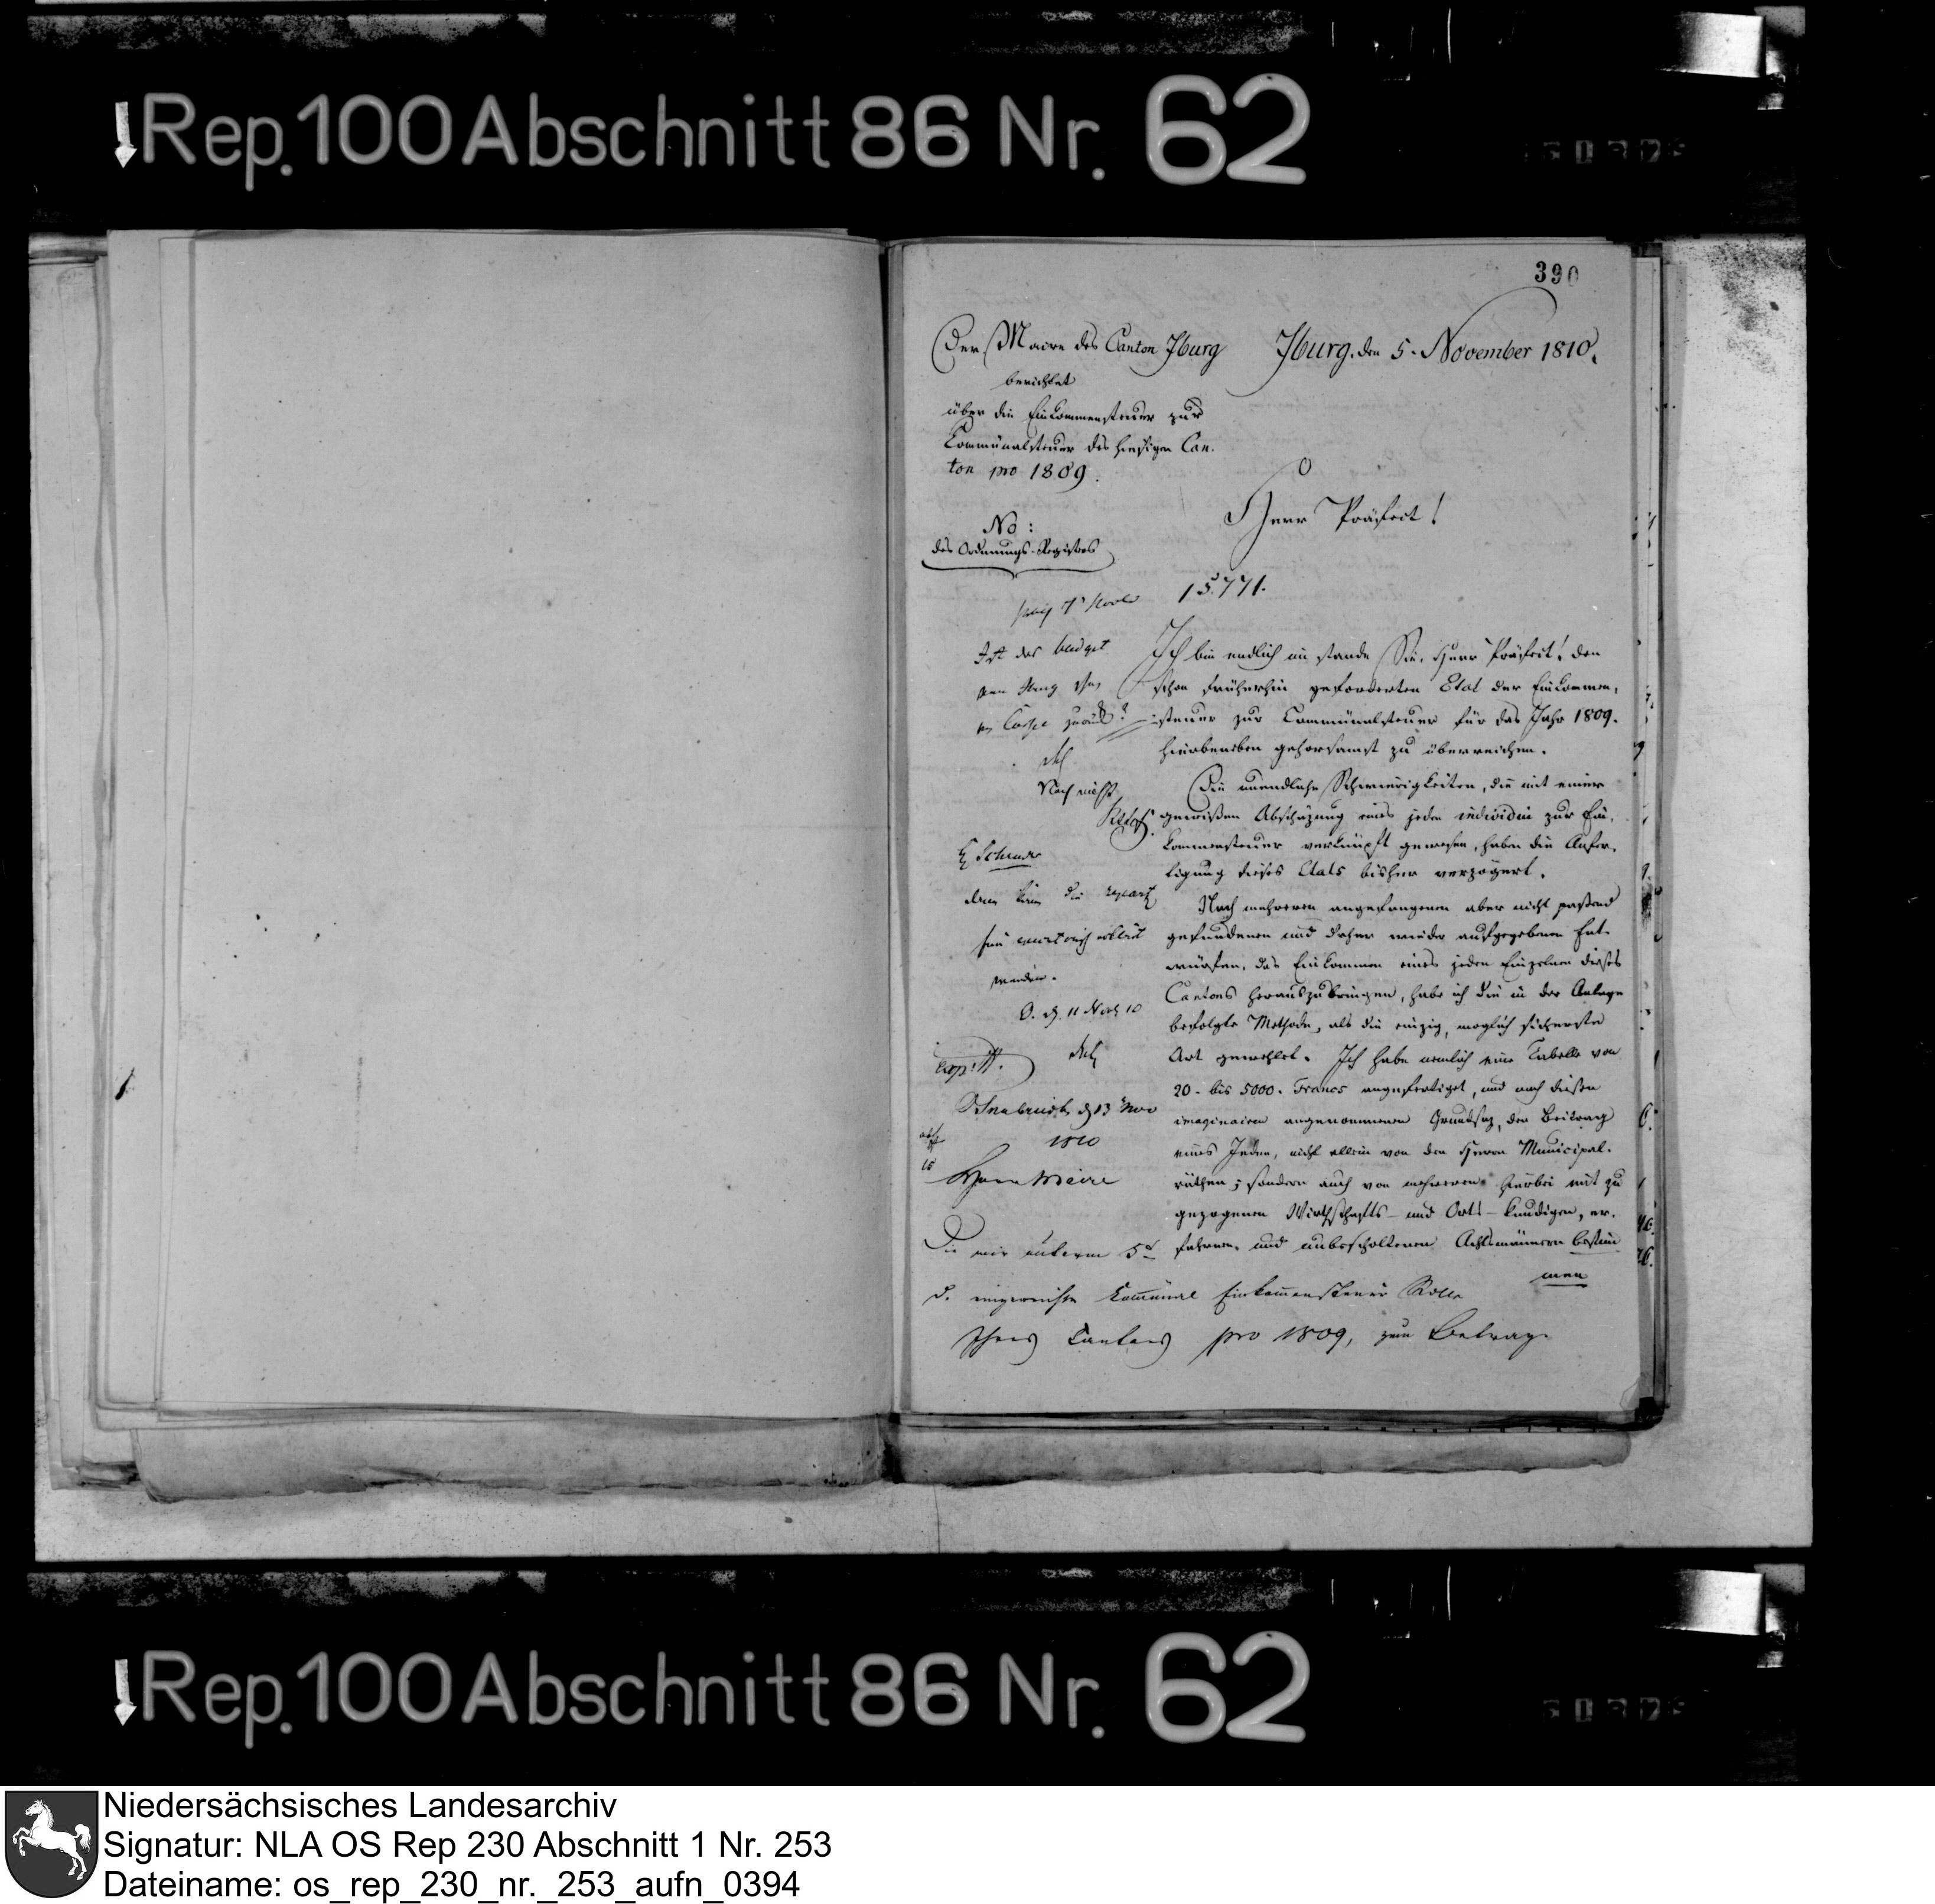 Rep. 100 Abschnitt 86 Nr. 62
390
Der Maire des Canton Iburg
berichtet
über die Einkommensteuer zur
Communalsteuer des hiesigen Can-
ton pro 1809.
Iburg, den 5. November 1810.
Herr Präfect!
No:
des Ordnungs-Registers
15771.
Ich bin endlich im stande Sie, Herr Präfect! den
schon früherhin geforderten Etat der Einkommen-
steuer zur Communalsteuer für das Jahr 1809.
hierbeneben gehorsamst zu überreichen.
Die unendliche Schwierigkeiten, die mit einer
gewißen Abschäzung eines jeden individui zur Ein-
kommensteuer verknüpft gewesen, haben die Anfer-
tigung dieses Etats bisher verzögert.
Nach mehreren angefangenen aber nicht paßend
gefundenen und daher wieder aufgegebenen Ent-
würfen, das Einkommen eines jeden Einzelnen dieses
Cantons herauszubringen, habe ich die in der Anlage
befolgte Methode, als die einzig, möglich sicherste
Art gewehlet. Ich habe nemlich eine Tabelle von
20. bis 5000. Francs angefertiget, und nach diesen
imaginairen angenommenen Grundsaz, den Beitrag
eines Jeden, nicht allein von den Herrn Municipal-
räthen; sondern auch von mehreren hierbei mit zu
gezogenen Wirthschafts- und Orts-kundigen, er-
fahrnen, und unbescholtenen Achtsmännern bestim
men
Ist das budget
zurück?
Noch nicht
H Schwarz
die repart
werden.
O. d. 11 Nov 10
Osnabrück d 13 Nov
1810
Herrn Maire
Die mir unterm 5t
d. eingereichte Communal Einkommensteuer Rolle
Ihres Cantons pro 1809, zum Betrage
Rep. 100 Abschnitt 86 Nr. 62
Niedersächsisches Landesarchiv
Signatur: NLA OS Rep 230 Abschnitt 1 Nr. 253
Dateiname: os_rep_230_nr._253_aufn_0394